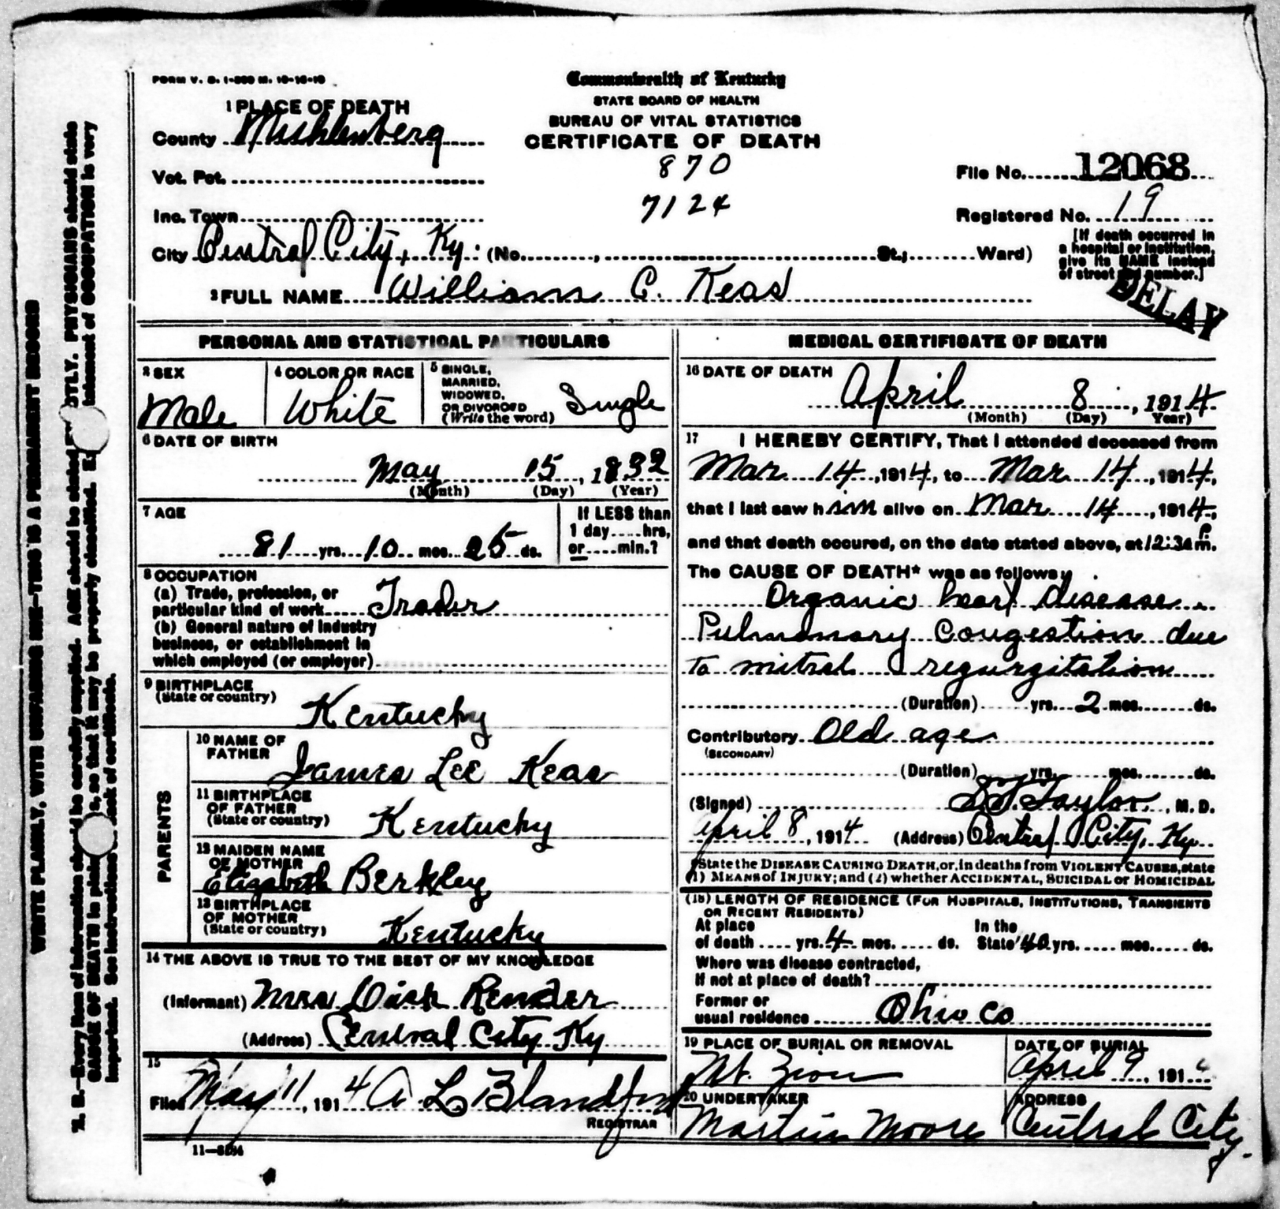 FORM V. S. 1-500 M. 10-10-10
Commonwealth of Kentucky
STATE BOARD OF HEALTH
BUREAU OF VITAL STATISTICS
CERTIFICATE OF DEATH
1 PLACE OF DEATH
County Muhlenberg
Vot. Pct.
Inc. Town
City Central City, Ky. (No. , St.; Ward)
870
7124
File No. 12068
Registered No. 19
[If death occurred in
a hospital or institution,
give its NAME instead
of street and number.]
DELAY
2 FULL NAME William C. Keas
PERSONAL AND STATISTICAL PARTICULARS
3 SEX
Male
4 COLOR OR RACE
White
5 SINGLE,
MARRIED,
WIDOWED,
OR DIVORCED
(Write the word)
Single
6 DATE OF BIRTH
May 15, 1832
(Month) (Day) (Year)
7 AGE
81 yrs. 10 mos. 25 ds.
If LESS than
1 day hrs.
or min.?
8 OCCUPATION
(a) Trade, profession, or
particular kind of work Trader
(b) General nature of industry
business, or establishment in
which employed (or employer)
9 BIRTHPLACE
(State or country)
Kentucky
PARENTS
10 NAME OF
FATHER
James Lee Keas
11 BIRTHPLACE
OF FATHER
(State or country)
Kentucky
12 MAIDEN NAME
OF MOTHER
Elizabeth Berkley
13 BIRTHPLACE
OF MOTHER
(State or country)
Kentucky
14 THE ABOVE IS TRUE TO THE BEST OF MY KNOWLEDGE
(Informant) Mrs Dick Render
(Address) Central City Ky
15
Filed May 11, 1914 A L Blandford
REGISTRAR
11-
MEDICAL CERTIFICATE OF DEATH
16 DATE OF DEATH
April 8, 1914
(Month) (Day) Year)
17 I HEREBY CERTIFY, That I attended deceased from
Mar 14, 1914, to Mar 14, 1914,
that I last saw him alive on Mar 14, 1914,
and that death occured, on the date stated above, at 12:30 P m.
The CAUSE OF DEATH* was as follows:
Organic heart disease
Pulmonary Congestion due
to mitral regurgitation
(Duration) yrs. 2 mos. ds.
Contributory Old age
(SECONDARY)
(Duration) yrs. mos. ds.
(Signed) Taylor, M. D.
April 8, 1914 (Address) Central City, Ky
*State the DISEASE CAUSING DEATH, or, in deaths from VIOLENT CAUSES, state
(1) MEANS of INJURY; and (2) whether ACCIDENTAL, SUICIDAL or HOMICIDAL
(18) LENGTH OF RESIDENCE (FOR HOSPITALS, INSTITUTIONS, TRANSIENTS
OR RECENT RESIDENTS)
At place In the
of death yrs. 4 mos. ds. State 40 yrs. mos. ds.
Where was disease contracted,
if not at place of death?
Former or
usual residence Ohio Co
19 PLACE OF BURIAL OR REMOVAL
Mt. Zion
DATE OF BURIAL
April 9, 191
20 UNDERTAKER
Martin Moore
ADDRESS
Central City
WRITE PLAINLY, WITH UNFADING INK—THIS IS A PERMANENT RECORD
N. B.—Every item of information should be carefully supplied. AGE should be stated EXACTLY. PHYSICIANS should state
CAUSE OF DEATH in plain so that it may be properly classified. statement of OCCUPATION is very
important. See instructions back of certificate.